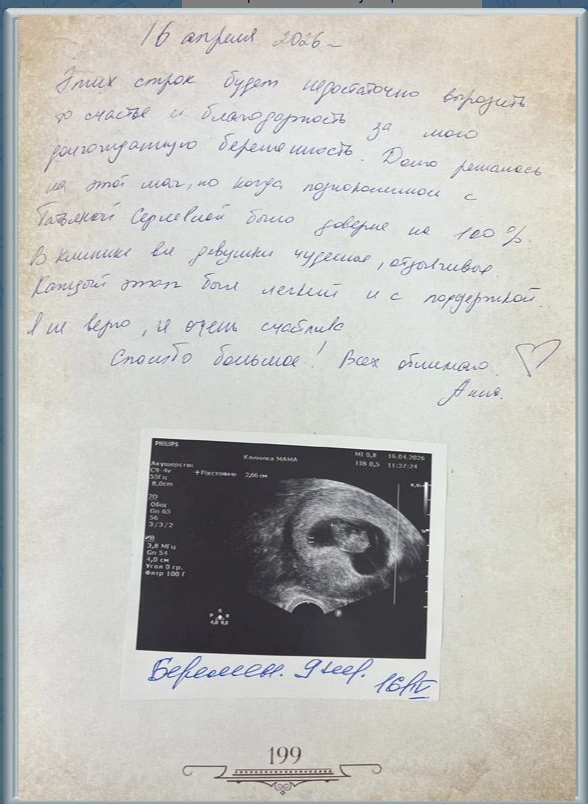 16 апреля 2026
Этих строк будет недостаточно выразить
то счастье и благодарность за мою
долгожданную беременность. Долго решалась
на этот шаг, но когда познакомилась с
Татьяной Сергеевной было доверие на 100%
В клинике все девушки чудесные, отзывчивые.
Каждый этап был легкий и с поддержкой.
Я не верю, я очень счастлива
Спасибо большое! Всех обнимаю.
Анна.
PHILIPS
Клиника МАМА
MI 0,8 16.04.2026
TIB 0,5 11:37:24
Акушерстви
C9-4v
55Гц
8,0cm
+Расстояние 2,66 см
2D
Общ
Gn 65
56
3/3/2
3,8 МГц
Gn 54
4,0 см
Угол 0 гр.
Флтр 100 Г
Беремен. 9 нед.
16/IV
199